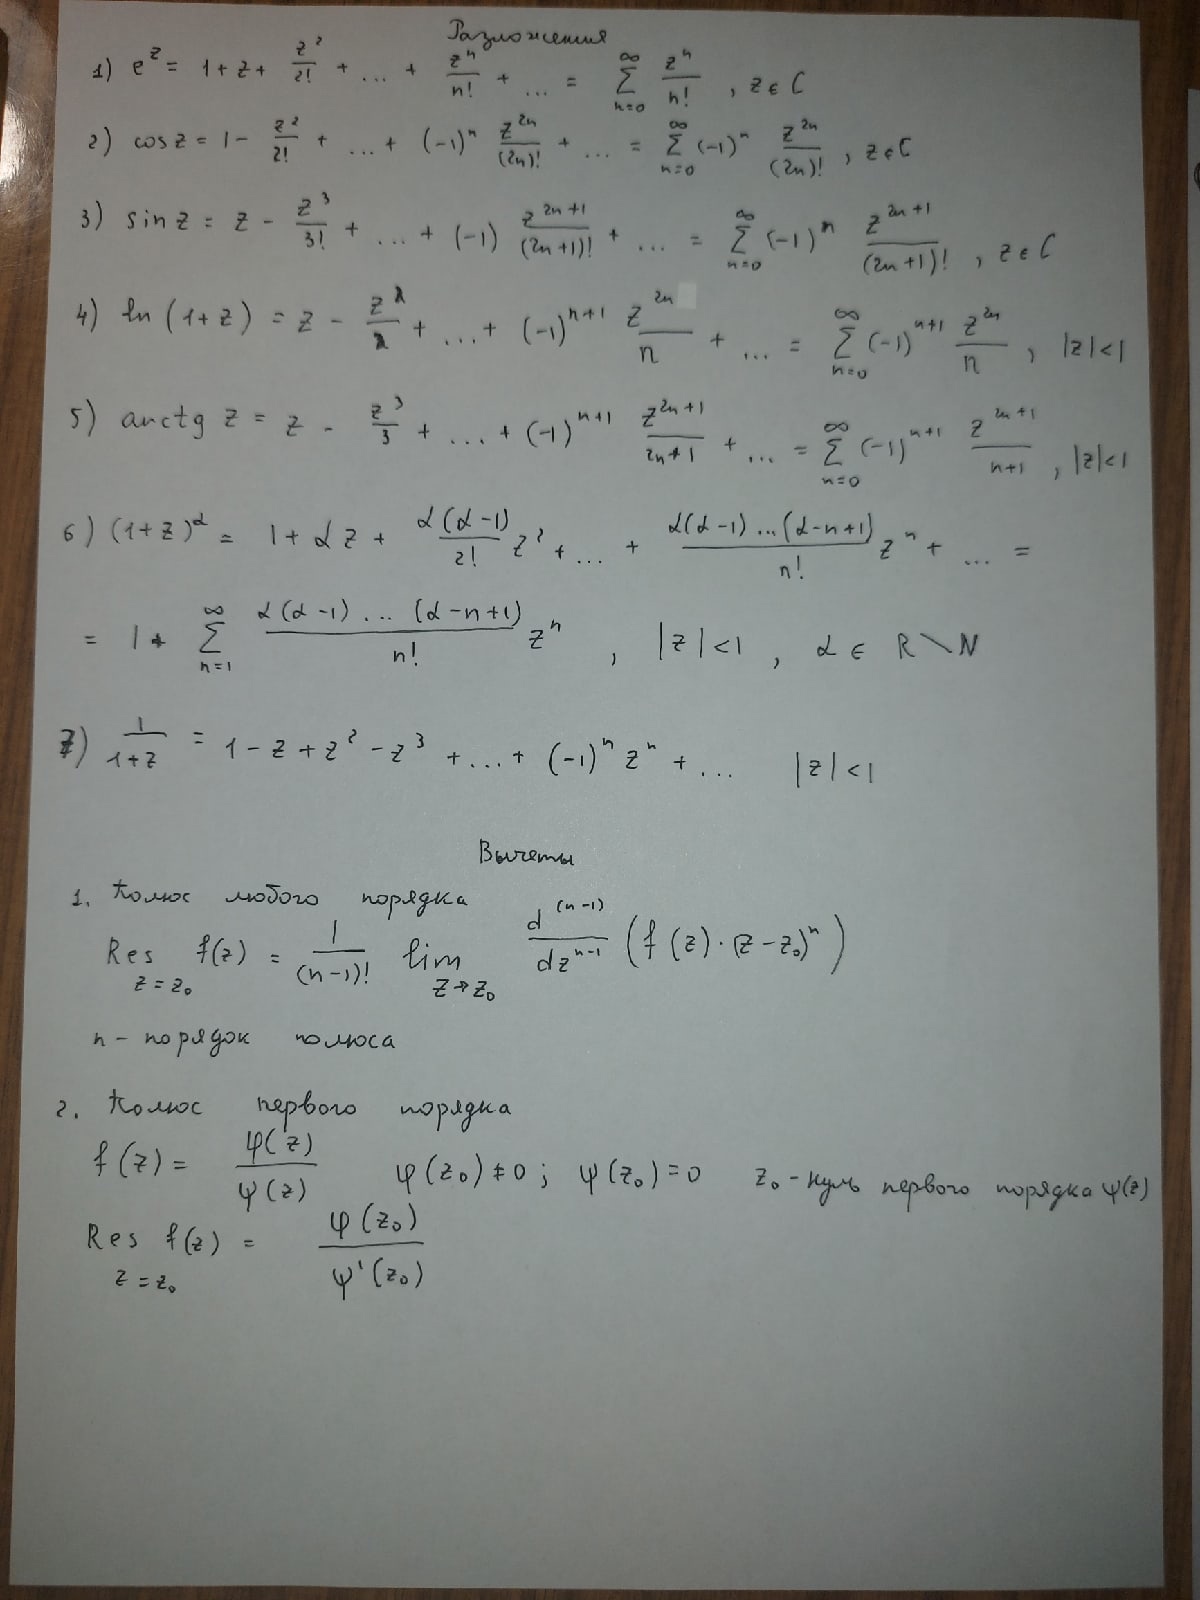 Разложения
1) e^z = 1 + z + z^2/2! + ... + z^n/n! + ... = ∑_{n=0}^{∞} z^n/n! , z ∈ C
2) cos z = 1 - z^2/2! + ... + (-1)^n z^{2n}/(2n)! + ... = ∑_{n=0}^{∞} (-1)^n z^{2n}/(2n)! , z ∈ C
3) sin z = z - z^3/3! + ... + (-1) z^{2n+1}/(2n+1)! + ... = ∑_{n=0}^{∞} (-1)^n z^{2n+1}/(2n+1)! , z ∈ C
4) ln (1+z) = z - z^2/2 + ... + (-1)^{n+1} z^{2n}/n + ... = ∑_{n=0}^{∞} (-1)^{n+1} z^{2n}/n , |z|<1
5) arctg z = z - z^3/3 + ... + (-1)^{n+1} z^{2n+1}/(2n+1) + ... = ∑_{n=0}^{∞} (-1)^{n+1} z^{2n+1}/(n+1) , |z|<1
6) (1+z)^α = 1 + αz + α(α-1)/2! z^2 + ... + α(α-1)...(α-n+1)/n! z^n + ... =
= 1 + ∑_{n=1}^{∞} α(α-1)...(α-n+1)/n! z^n , |z|<1 , α ∈ R \ N
7) 1/(1+z) = 1 - z + z^2 - z^3 + ... + (-1)^n z^n + ... |z|<1
Вычеты
1. Полюс любого порядка
Res_{z=z_0} f(z) = 1/(n-1)! lim_{z→z_0} d^{(n-1)}/dz^{n-1} (f(z)·(z-z_0)^n)
n - порядок полюса
2. Полюс первого порядка
f(z) = φ(z)/ψ(z) φ(z_0) ≠ 0 ; ψ(z_0) = 0 z_0 - нуль первого порядка ψ(z)
Res_{z=z_0} f(z) = φ(z_0)/ψ'(z_0)